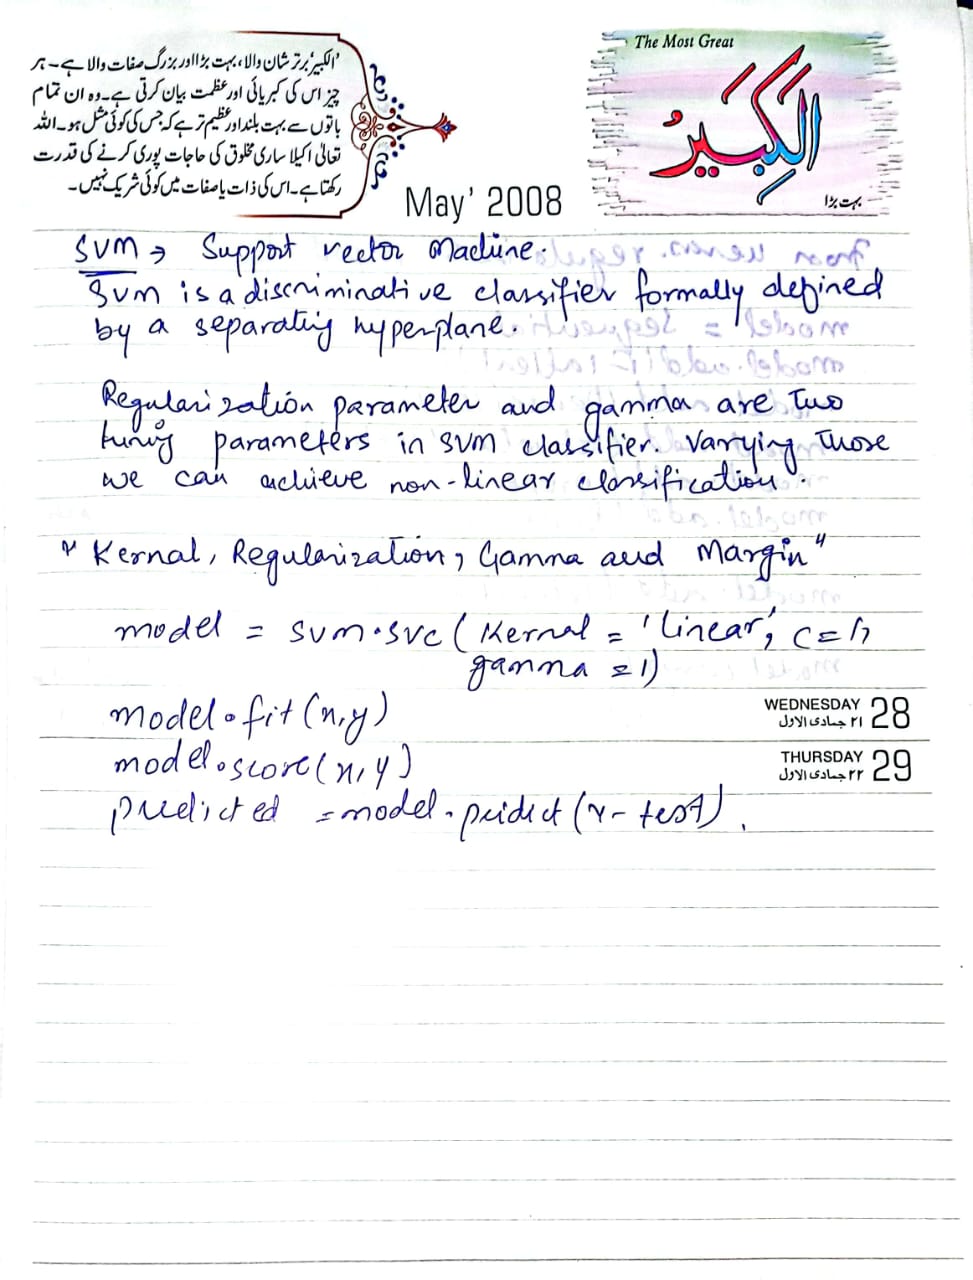 'الکبیر' برتر شان والا، بہت بڑا اور بزرگ صفات والا ہے۔ ہر
چیز اس کی کبریائی اور عظمت بیان کرتی ہے۔ وہ ان تمام
باتوں سے بہت بلند اور عظیم تر ہے کہ جس کی کوئی مثل ہو۔ اللہ
تعالیٰ اکیلا ساری مخلوق کی حاجات پوری کرنے کی قدرت
رکھتا ہے۔ اس کی ذات یا صفات میں کوئی شریک نہیں۔
The Most Great
الْكَبِيرُ
بہت بڑا
May' 2008
SVM → Support vector Machine.
SVM is a discriminative classifier formally defined
by a separating hyperplane.
Regularization parameter and gamma are two
tuning parameters in SVM classifier. Varying those
we can achieve non-linear classification.
"Kernal, Regularization, Gamma and Margin"
model = svm.svc (Kernal = 'linear', c=1,
gamma =1)
model.fit(x,y)
WEDNESDAY 28
۲۱ جمادی الاول
model.score(x,y)
THURSDAY 29
۲۲ جمادی الاول
predicted = model.pridict(x-test).